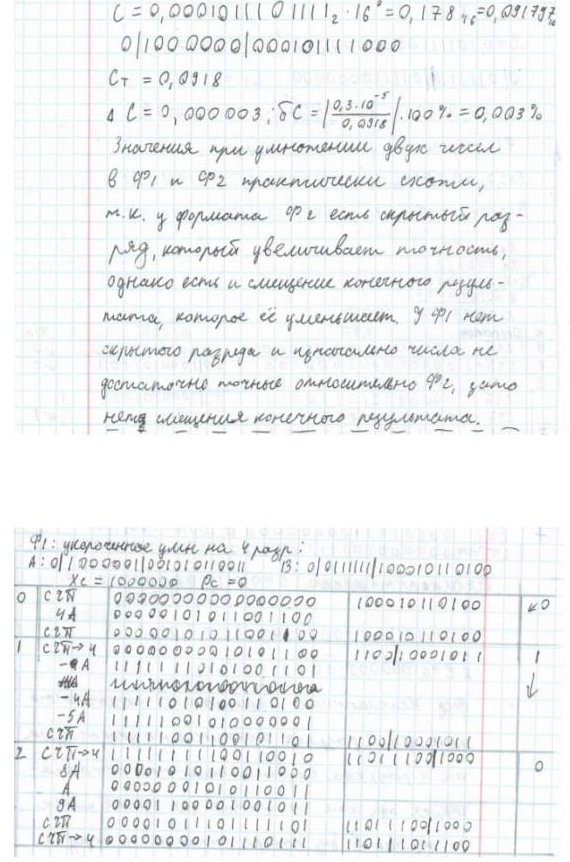 C = 0,00010111101111₂ · 16⁰ = 0,178₁₆ = 0,091797₁₀
0|1000000|000101111000
Cт = 0,0918
ΔC = 0,000003; δC = |0,3·10⁻⁵ / 0,0918| · 100% = 0,003%
Значения при умножении двух чисел
в Ф1 и Ф2 практически схожи,
т.к. у формата Ф2 есть скрытый раз-
ряд, который увеличивает точность,
однако есть и смещение конечного резуль-
тата, которое её уменьшает. У Ф1 нет
скрытого разряда и изначально числа не
достаточно точные относительно Ф2, зато
нет смещения конечного результата.
Ф1: укороченное умн на 4 разр:
A: 0|1000001|001010110011 B: 0|0111111|100010110100
Xc = 1000000 Pc = 0
0 СЧП 0000000000000000 100010110100 <0
4A 0000101011001100
СЧП 0000101011001100 100010110100
1 СЧП→4 0000000010101100 1100|10001011 1
-A 1111110101001101
-4A 1111010100110100
-5A 1111001010000001
СЧП 1111001100101101 1100|10001011
2 СЧП→4 1111111100110010 11011100|1000 0
8A 0001010110011000
A 0000001010110011
9A 0001100001001011
СЧП 0001011101111101 11011100|1000
СЧП→4 0000000101110111 110111011100